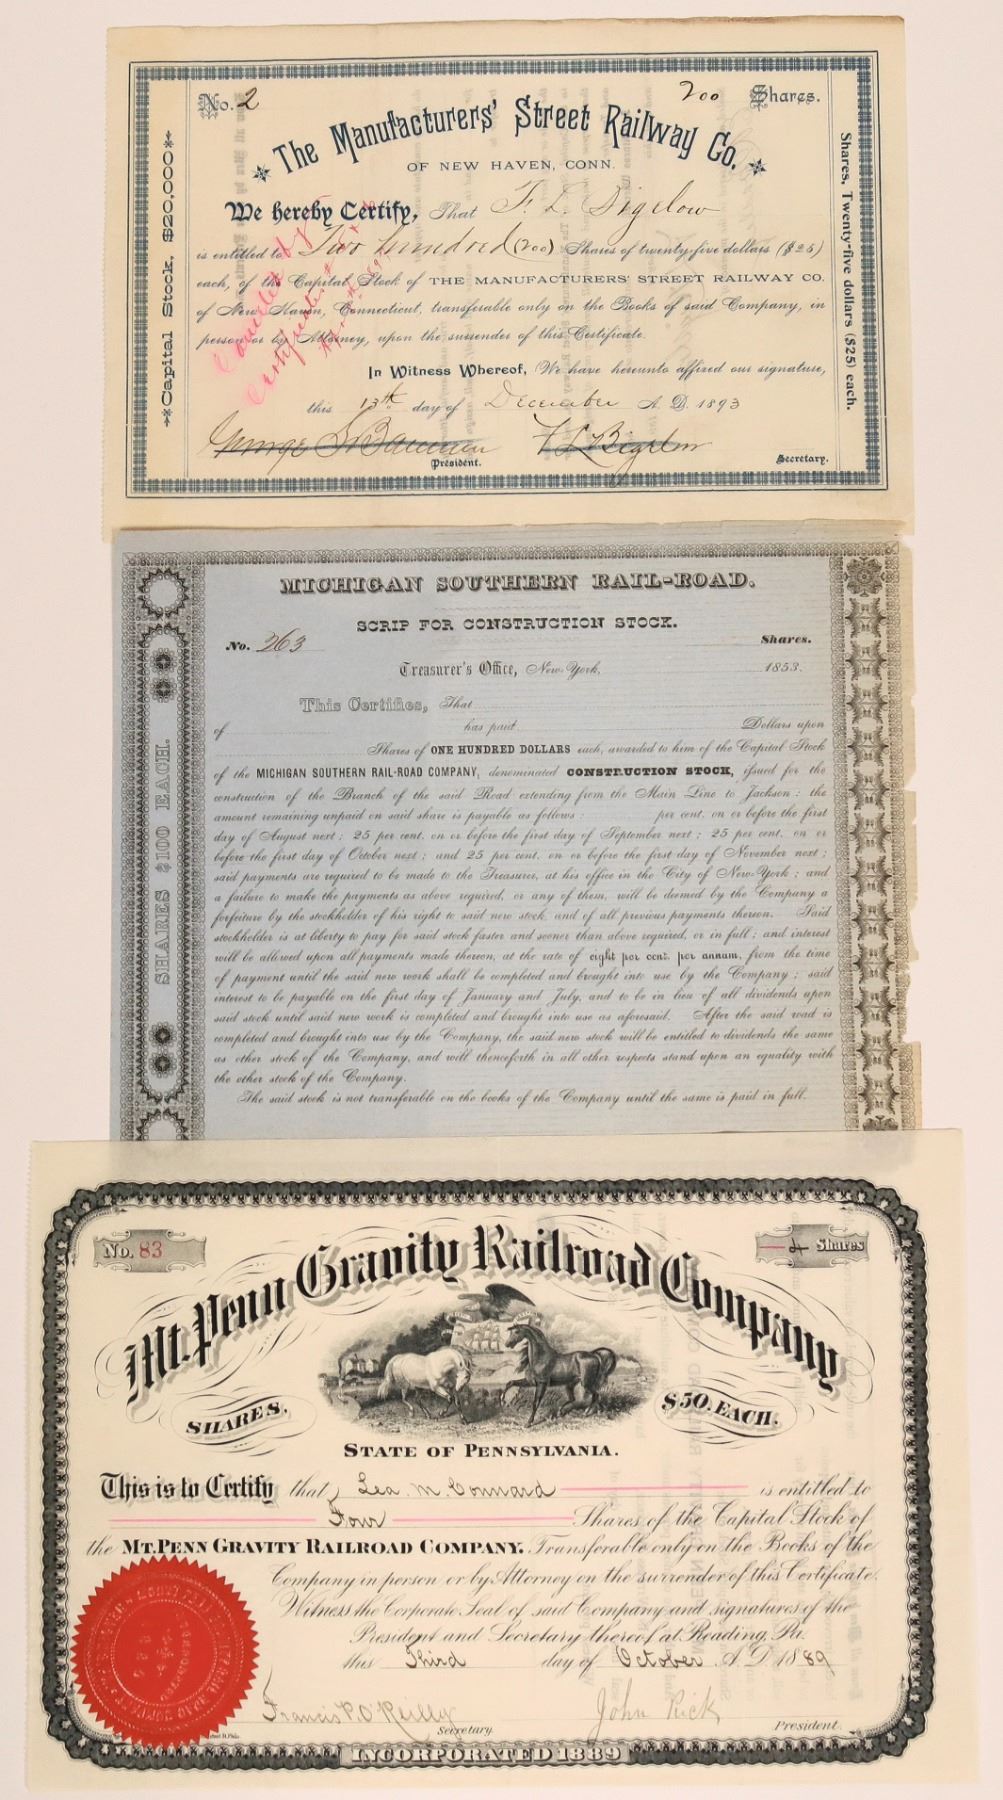 No. 2
200 Shares.
The Manufacturers' Street Railway Co.
OF NEW HAVEN, CONN.
We hereby Certify, That F. L. Bigelow
is entitled to Two hundred (200) Shares of twenty-five dollars ($25)
each, of the Capital Stock of THE MANUFACTURERS' STREET RAILWAY CO.
of New Haven, Connecticut, transferable only on the Books of said Company, in
person or by Attorney, upon the surrender of this Certificate.
In Witness Whereof, We have hereunto affixed our signature,
this 13th day of December A. D. 1893
F L Bigelow
President.
Secretary.
Capital Stock, $20,000
Shares, Twenty-five dollars ($25) each.
MICHIGAN SOUTHERN RAIL-ROAD.
SCRIP FOR CONSTRUCTION STOCK.
No. 263
Shares.
Treasurer's Office, New-York, 1853.
This Certifies, That
of has paid Dollars upon
Shares of ONE HUNDRED DOLLARS each, awarded to him of the Capital Stock
of the MICHIGAN SOUTHERN RAIL-ROAD COMPANY, denominated CONSTRUCTION STOCK, issued for the
construction of the Branch of the said Road extending from the Main Line to Jackson: the
amount remaining unpaid on said share is payable as follows: per cent. on or before the first
day of August next; 25 per cent. on or before the first day of September next; 25 per cent. on or
before the first day of October next; and 25 per cent. on or before the first day of November next;
said payments are required to be made to the Treasurer, at his office in the City of New-York; and
a failure to make the payments as above required, or any of them, will be deemed by the Company a
forfeiture by the stockholder of his right to said new stock, and of all previous payments thereon. Said
stockholder is at liberty to pay for said stock faster and sooner than above required, or in full; and interest
will be allowed upon all payments made thereon, at the rate of eight per cent. per annum, from the time
of payment until the said new work shall be completed and brought into use by the Company; said
interest to be payable on the first day of January and July, and to be in lieu of all dividends upon
said stock until said new work is completed and brought into use as aforesaid. After the said road is
completed and brought into use by the Company, the said new stock will be entitled to dividends the same
as other stock of the Company, and will thenceforth in all other respects stand upon an equality with
the other stock of the Company.
The said stock is not transferable on the books of the Company until the same is paid in full.
SHARES $100 EACH.
No. 83
4 Shares
Mt. Penn Gravity Railroad Company
SHARES.
$50. EACH.
STATE OF PENNSYLVANIA.
This is to Certify that Lea. M. Connard is entitled to
Four Shares of the Capital Stock of
the MT. PENN GRAVITY RAILROAD COMPANY. Transferable only on the Books of the
Company in person or by Attorney on the surrender of this Certificate.
Witness the Corporate Seal of said Company and signatures of the
President and Secretary thereof at Reading, Pa.
this Third day of October A. D. 1889
Francis P. O'Reilly
Secretary
John Rick
President.
INCORPORATED 1889